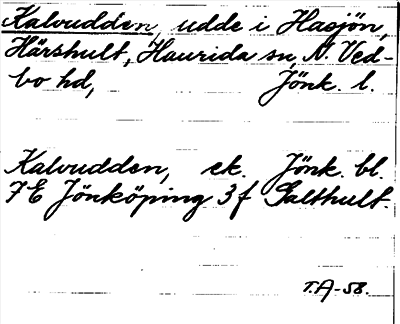 Kalvudden, udde i Hasjön,
Härshult, Haurida sn, N. Ved-
bo hd, Jönk. l.
Kalvudden, ek. Jönk. bl.
7E Jönköping 3f Salthult.
T.A-58.